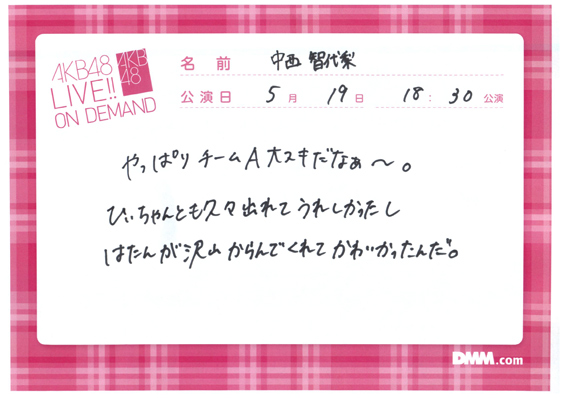 AKB48
LIVE!!
ON DEMAND
AKB
48
名前 中西智代梨
公演日 5月 19日 18:30公演
やっぱりチームA大スキだなぁ〜。
ひぃちゃんとも久々出れてうれしかったし
はたんが沢山からんでくれてかわいかったんだ。
DMM.com